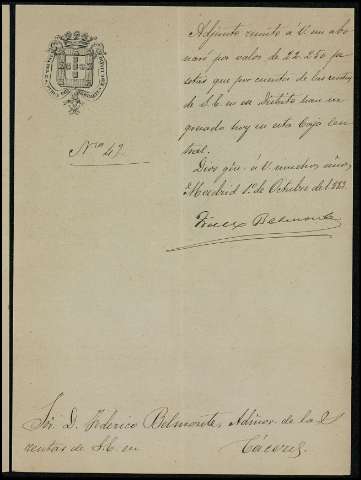 Nro 49.
Adjunto remito á V. un abo
naré por valor de 22.250 pe
setas que por cuenta de las rentas
de S. E. en su Distrito han in
gresado hoy en esta Caja Cen
tral.
Dios gûe. á V. muchos años.
Madrid 1º de Octubre de 1883.
Belmonte
Sr. D. Federico Belmonte, Admor. de las
rentas de S. E. en Cáceres.